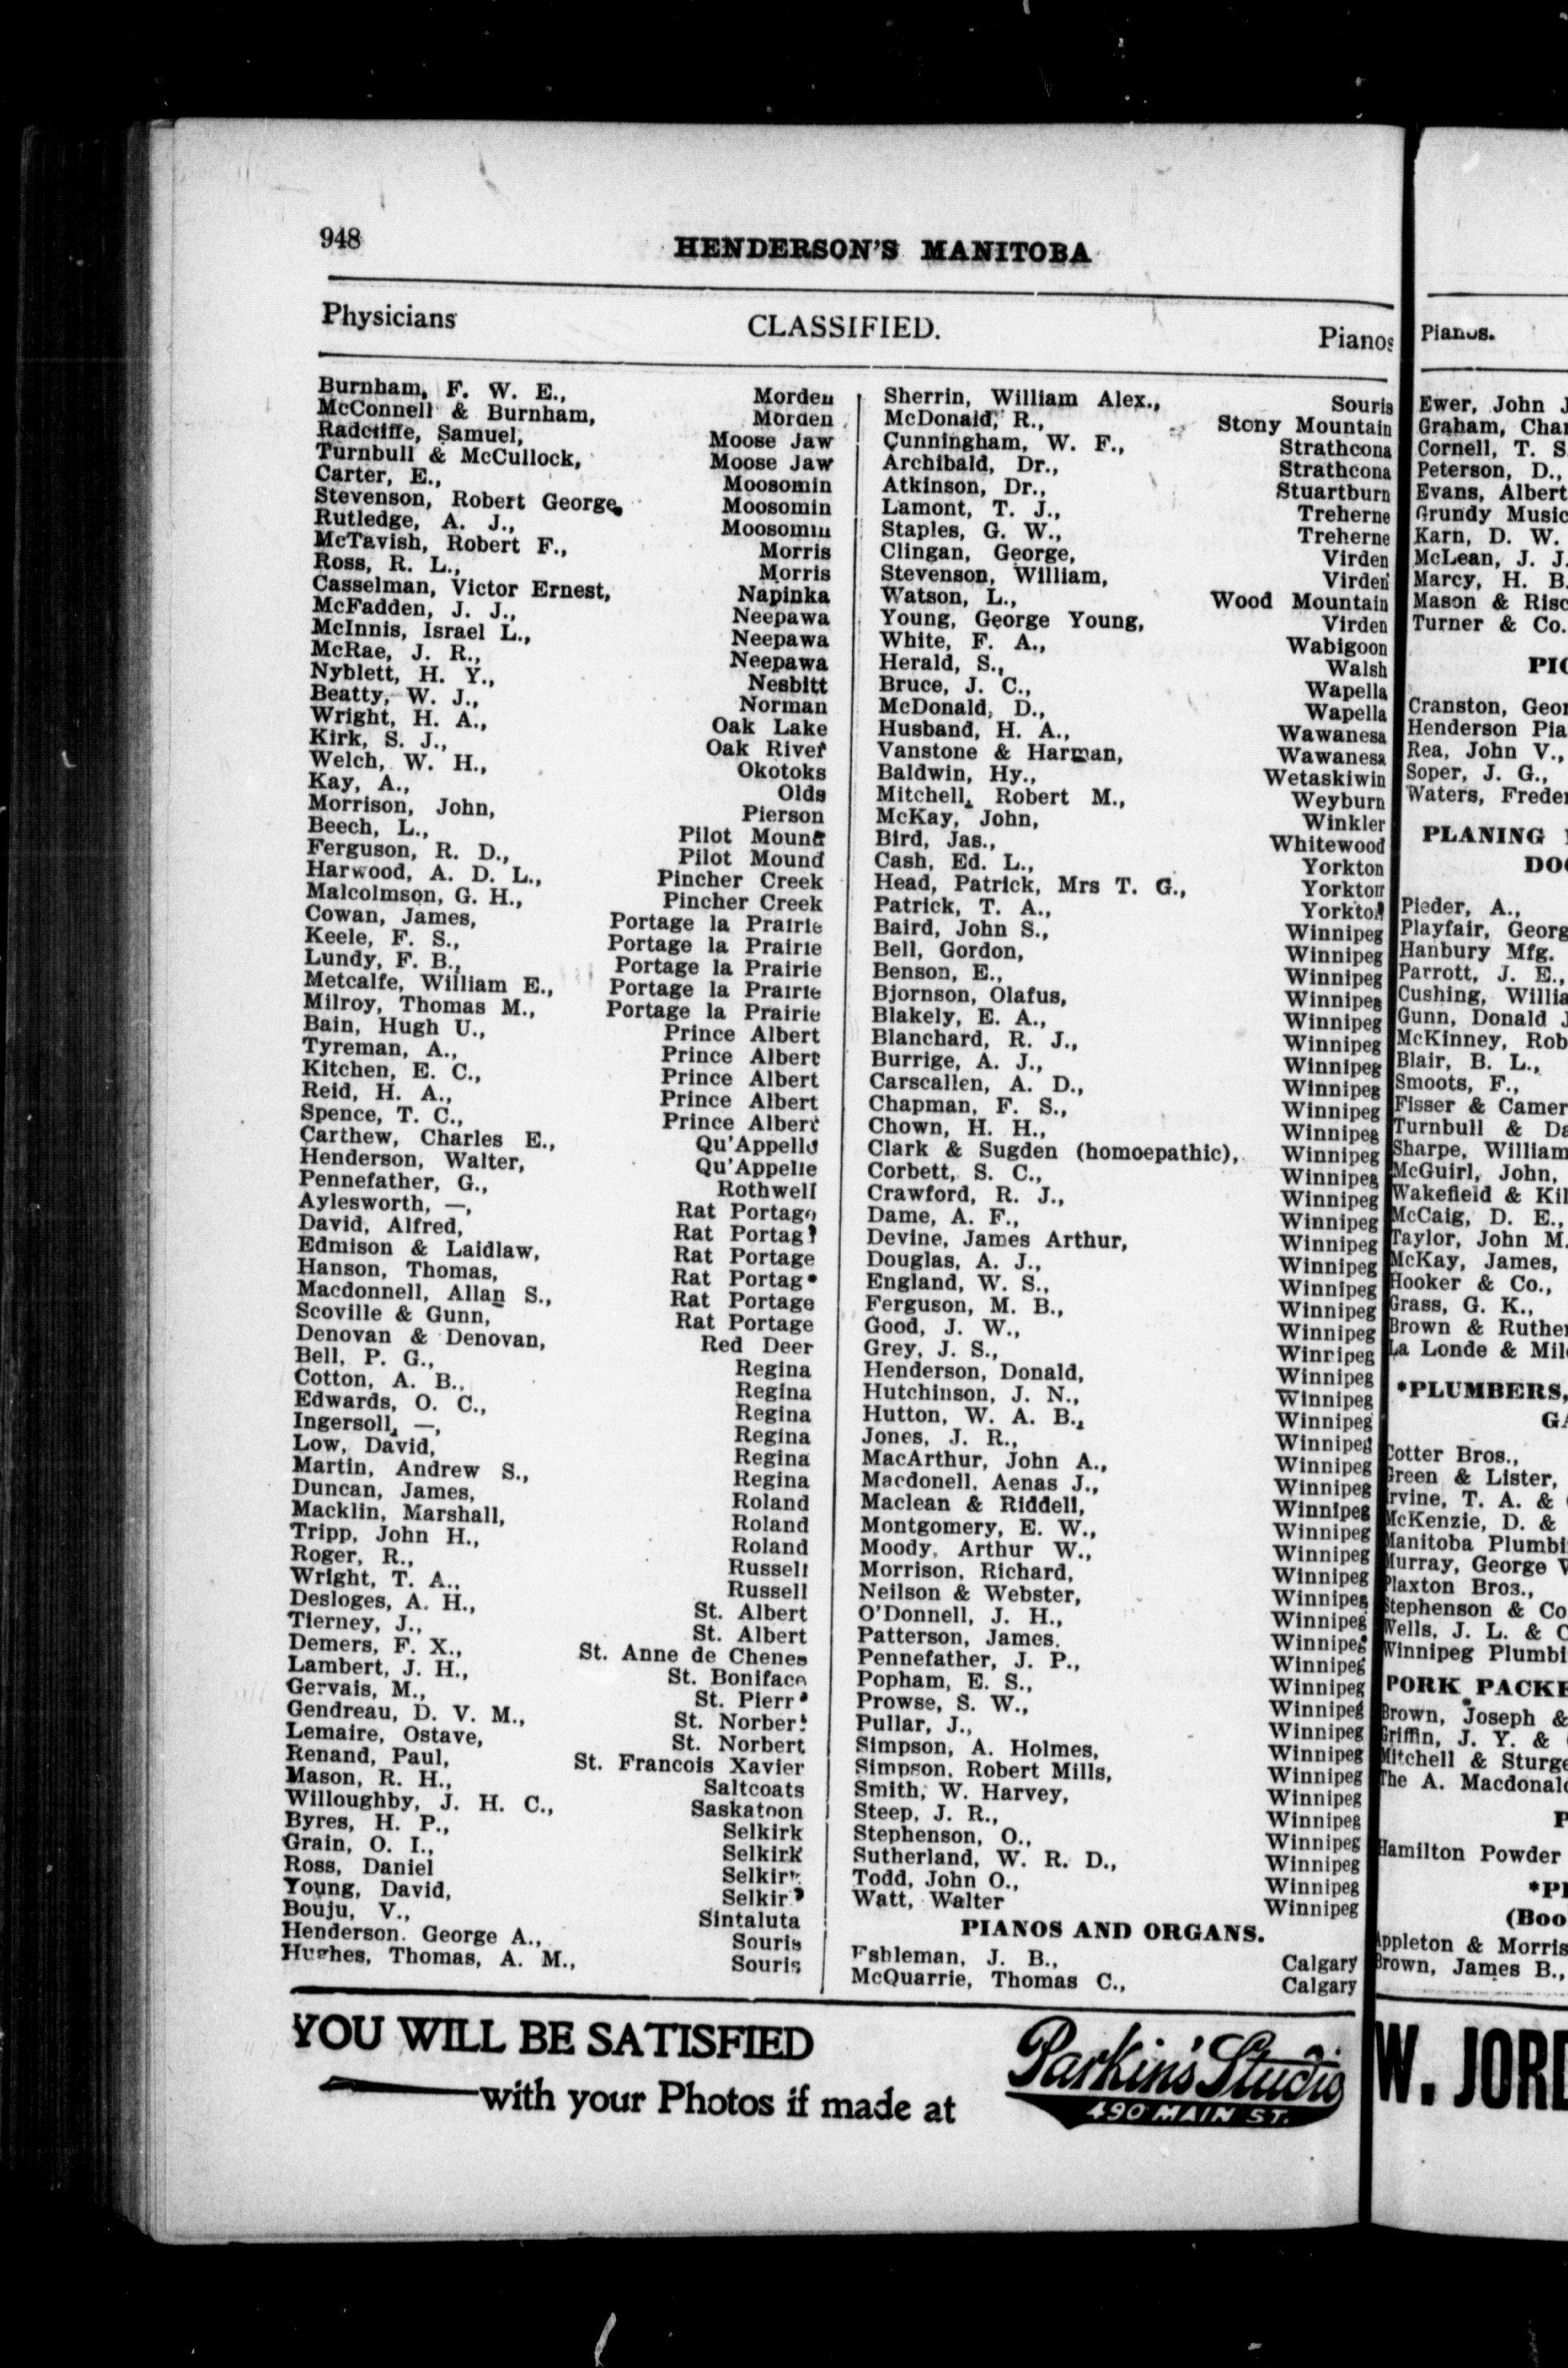 948
HENDERSON'S MANITOBA
Physicians CLASSIFIED. Pianos
Burnham, F. W. E., Morden
McConnell & Burnham, Morden
Radcliffe, Samuel, Moose Jaw
Turnbull & McCullock, Moose Jaw
Carter, E., Moosomin
Stevenson, Robert George, Moosomin
Rutledge, A. J., Moosomin
McTavish, Robert F., Morris
Ross, R. L., Morris
Casselman, Victor Ernest, Napinka
McFadden, J. J., Neepawa
McInnis, Israel L., Neepawa
McRae, J. R., Neepawa
Nyblett, H. Y., Nesbitt
Beatty, W. J., Norman
Wright, H. A., Oak Lake
Kirk, S. J., Oak River
Welch, W. H., Okotoks
Kay, A., Olds
Morrison, John, Pierson
Beech, L., Pilot Mound
Ferguson, R. D., Pilot Mound
Harwood, A. D. L., Pincher Creek
Malcolmson, G. H., Pincher Creek
Cowan, James, Portage la Prairie
Keele, F. S., Portage la Prairie
Lundy, F. B., Portage la Prairie
Metcalfe, William E., Portage la Prairie
Milroy, Thomas M., Portage la Prairie
Bain, Hugh U., Prince Albert
Tyreman, A., Prince Albert
Kitchen, E. C., Prince Albert
Reid, H. A., Prince Albert
Spence, T. C., Prince Albert
Carthew, Charles E., Qu'Appelle
Henderson, Walter, Qu'Appelle
Pennefather, G., Rothwell
Aylesworth, —, Rat Portage
David, Alfred, Rat Portage
Edmison & Laidlaw, Rat Portage
Hanson, Thomas, Rat Portage
Macdonnell, Allan S., Rat Portage
Scoville & Gunn, Rat Portage
Denovan & Denovan, Red Deer
Bell, P. G., Regina
Cotton, A. B., Regina
Edwards, O. C., Regina
Ingersoll, —, Regina
Low, David, Regina
Martin, Andrew S., Regina
Duncan, James, Roland
Macklin, Marshall, Roland
Tripp, John H., Roland
Roger, R., Russell
Wright, T. A., Russell
Desloges, A. H., St. Albert
Tierney, J., St. Albert
Demers, F. X., St. Anne de Chenes
Lambert, J. H., St. Boniface
Gervais, M., St. Pierre
Gendreau, D. V. M., St. Norbert
Lemaire, Ostave, St. Norbert
Renand, Paul, St. Francois Xavier
Mason, R. H., Saltcoats
Willoughby, J. H. C., Saskatoon
Byres, H. P., Selkirk
Grain, O. I., Selkirk
Ross, Daniel Selkirk
Young, David, Selkirk
Bouju, V., Sintaluta
Henderson. George A., Souris
Hughes, Thomas, A. M., Souris
Sherrin, William Alex., Souris
McDonald, R., Stony Mountain
Cunningham, W. F., Strathcona
Archibald, Dr., Strathcona
Atkinson, Dr., Stuartburn
Lamont, T. J., Treherne
Staples, G. W., Treherne
Clingan, George, Virden
Stevenson, William, Virden
Watson, L., Wood Mountain
Young, George Young, Virden
White, F. A., Wabigoon
Herald, S., Walsh
Bruce, J. C., Wapella
McDonald, D., Wapella
Husband, H. A., Wawanesa
Vanstone & Harman, Wawanesa
Baldwin, Hy., Wetaskiwin
Mitchell, Robert M., Weyburn
McKay, John, Winkler
Bird, Jas., Whitewood
Cash, Ed. L., Yorkton
Head, Patrick, Mrs T. G., Yorkton
Patrick, T. A., Yorkton
Baird, John S., Winnipeg
Bell, Gordon, Winnipeg
Benson, E., Winnipeg
Bjornson, Olafus, Winnipeg
Blakely, E. A., Winnipeg
Blanchard, R. J., Winnipeg
Burrige, A. J., Winnipeg
Carscallen, A. D., Winnipeg
Chapman, F. S., Winnipeg
Chown, H. H., Winnipeg
Clark & Sugden (homoepathic), Winnipeg
Corbett, S. C., Winnipeg
Crawford, R. J., Winnipeg
Dame, A. F., Winnipeg
Devine, James Arthur, Winnipeg
Douglas, A. J., Winnipeg
England, W. S., Winnipeg
Ferguson, M. B., Winnipeg
Good, J. W., Winnipeg
Grey, J. S., Winnipeg
Henderson, Donald, Winnipeg
Hutchinson, J. N., Winnipeg
Hutton, W. A. B., Winnipeg
Jones, J. R., Winnipeg
MacArthur, John A., Winnipeg
Macdonell, Aenas J., Winnipeg
Maclean & Riddell, Winnipeg
Montgomery, E. W., Winnipeg
Moody, Arthur W., Winnipeg
Morrison, Richard, Winnipeg
Neilson & Webster, Winnipeg
O'Donnell, J. H., Winnipeg
Patterson, James, Winnipeg
Pennefather, J. P., Winnipeg
Popham, E. S., Winnipeg
Prowse, S. W., Winnipeg
Pullar, J., Winnipeg
Simpson, A. Holmes, Winnipeg
Simpson, Robert Mills, Winnipeg
Smith, W. Harvey, Winnipeg
Steep, J. R., Winnipeg
Stephenson, O., Winnipeg
Sutherland, W. R. D., Winnipeg
Todd, John O., Winnipeg
Watt, Walter Winnipeg
PIANOS AND ORGANS.
Eshleman, J. B., Calgary
McQuarrie, Thomas C., Calgary
YOU WILL BE SATISFIED
with your Photos if made at
Parkin's Studio
490 MAIN ST.
Pianos.
Ewer, John
Graham,
Cornell, T.
Peterson, D.,
Evans, Albert
Grundy Music
Karn, D. W.
McLean, J. J.
Marcy, H. B.
Mason &
Turner & Co.
Cranston,
Henderson
Rea, John V.,
Soper, J. G.,
Waters,
PLANING
Pieder, A.,
Playfair,
Hanbury Mfg.
Parrott, J. E.,
Cushing,
Gunn, Donald
McKinney,
Blair, B. L.,
Smoots, F.,
Fisser &
Turnbull &
Sharpe, William
McGuirl, John,
Wakefield &
McCaig, D. E.,
Taylor, John M.
McKay, James,
Hooker & Co.,
Grass, G. K.,
Brown &
La Londe &
*PLUMBERS,
Cotter Bros.,
Green & Lister,
Irvine, T. A. &
McKenzie, D. &
Manitoba
Murray, George
Plaxton Bros.,
Stephenson & Co
Wells, J. L. &
Winnipeg
PORK
Brown, Joseph &
Griffin, J. Y. &
Mitchell &
The A.
Hamilton Powder
Appleton &
Brown, James B.,
W.